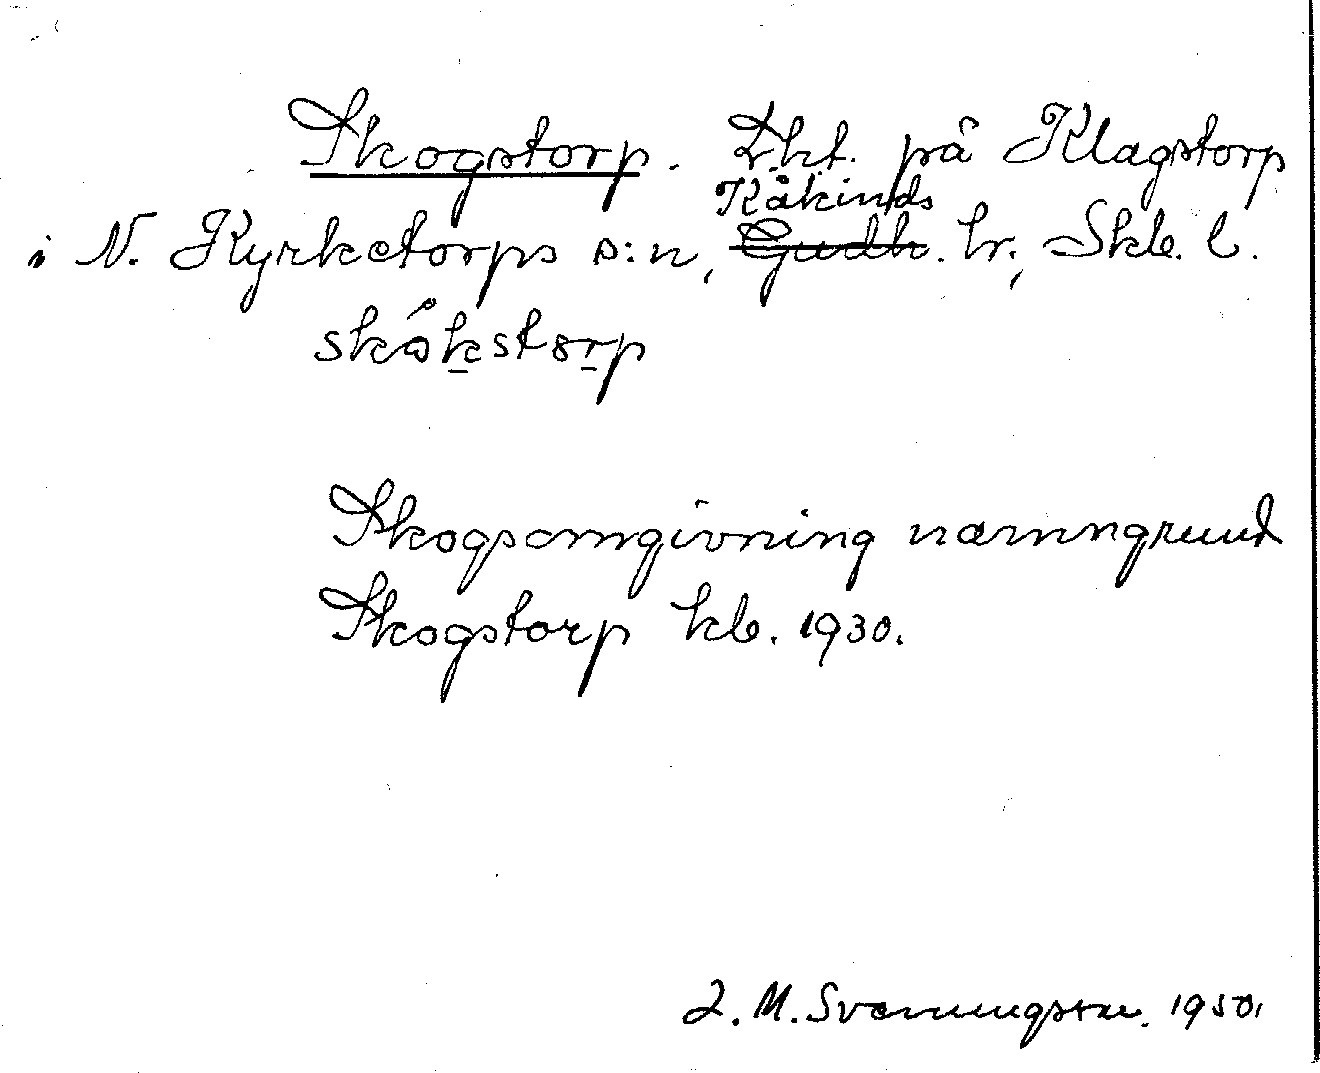 Skogstorp. Lht. på Klagstorp
Kåkinds
i N. Kyrketorps s:n, Gudh. hr., Skb. l.
skåkstorp
Skogsomgivning namngrund
Skogstorp kb. 1930.
J. M. Svenningson. 1950.